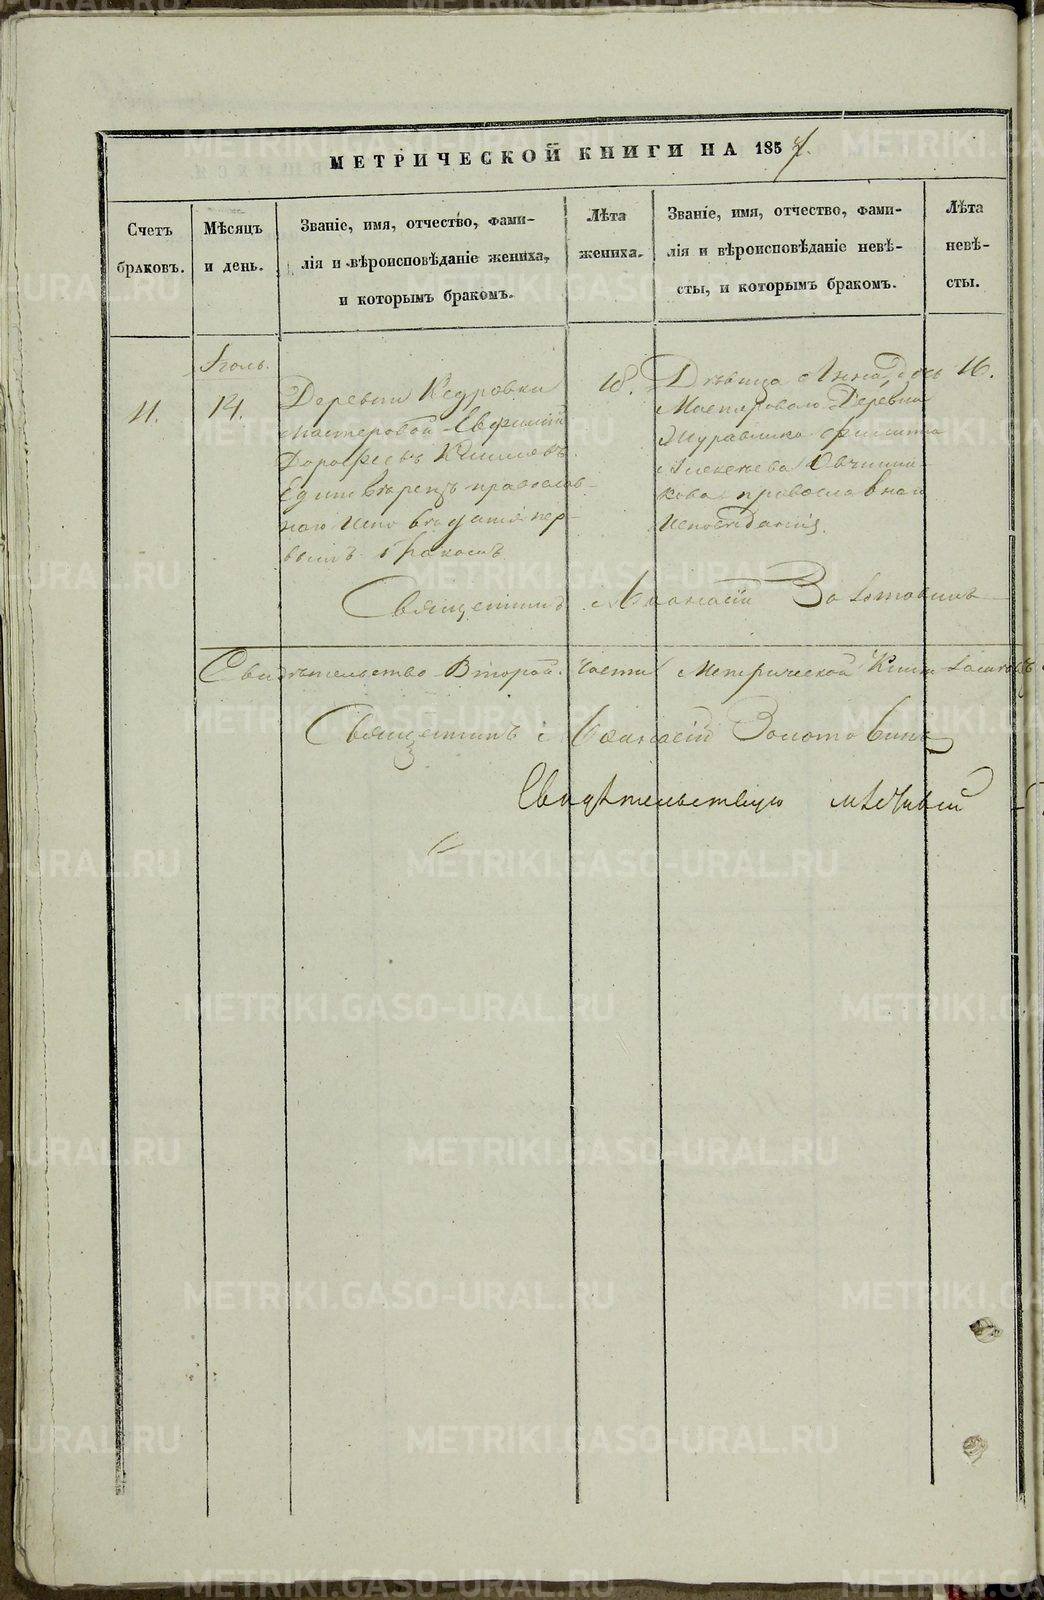 МЕТРИЧЕСКОЙ КНИГИ НА 1857.
Счетъ браковъ.
Мѣсяцъ и день.
Званіе, имя, отчество, фами-
лія и вѣроисповѣданіе жениха,
и которымъ бракомъ.
Лѣта жениха.
Званіе, имя, отчество, фами-
лія и вѣроисповѣданіе невѣ-
сты, и которымъ бракомъ.
Лѣта невѣ-
сты.
11.
Іюль.
14.
Деревни Кедровки
мастеровой Евфимій
Дорофеевъ
Единовѣрецъ православ-
наго исповѣданія пер-
вымъ бракомъ
18.
Дѣвица Анна, дочь
Мастероваго Деревни
Алексѣева Овчинни-
кова православнаго
исповѣданія.
16.
Священникъ Афанасій Золотовинъ
Свидѣтельство Второй части Метрической Книги
Священникъ Афанасій Золотовинъ
Свидѣтельствую
METRIKI.GASO-URAL.RU